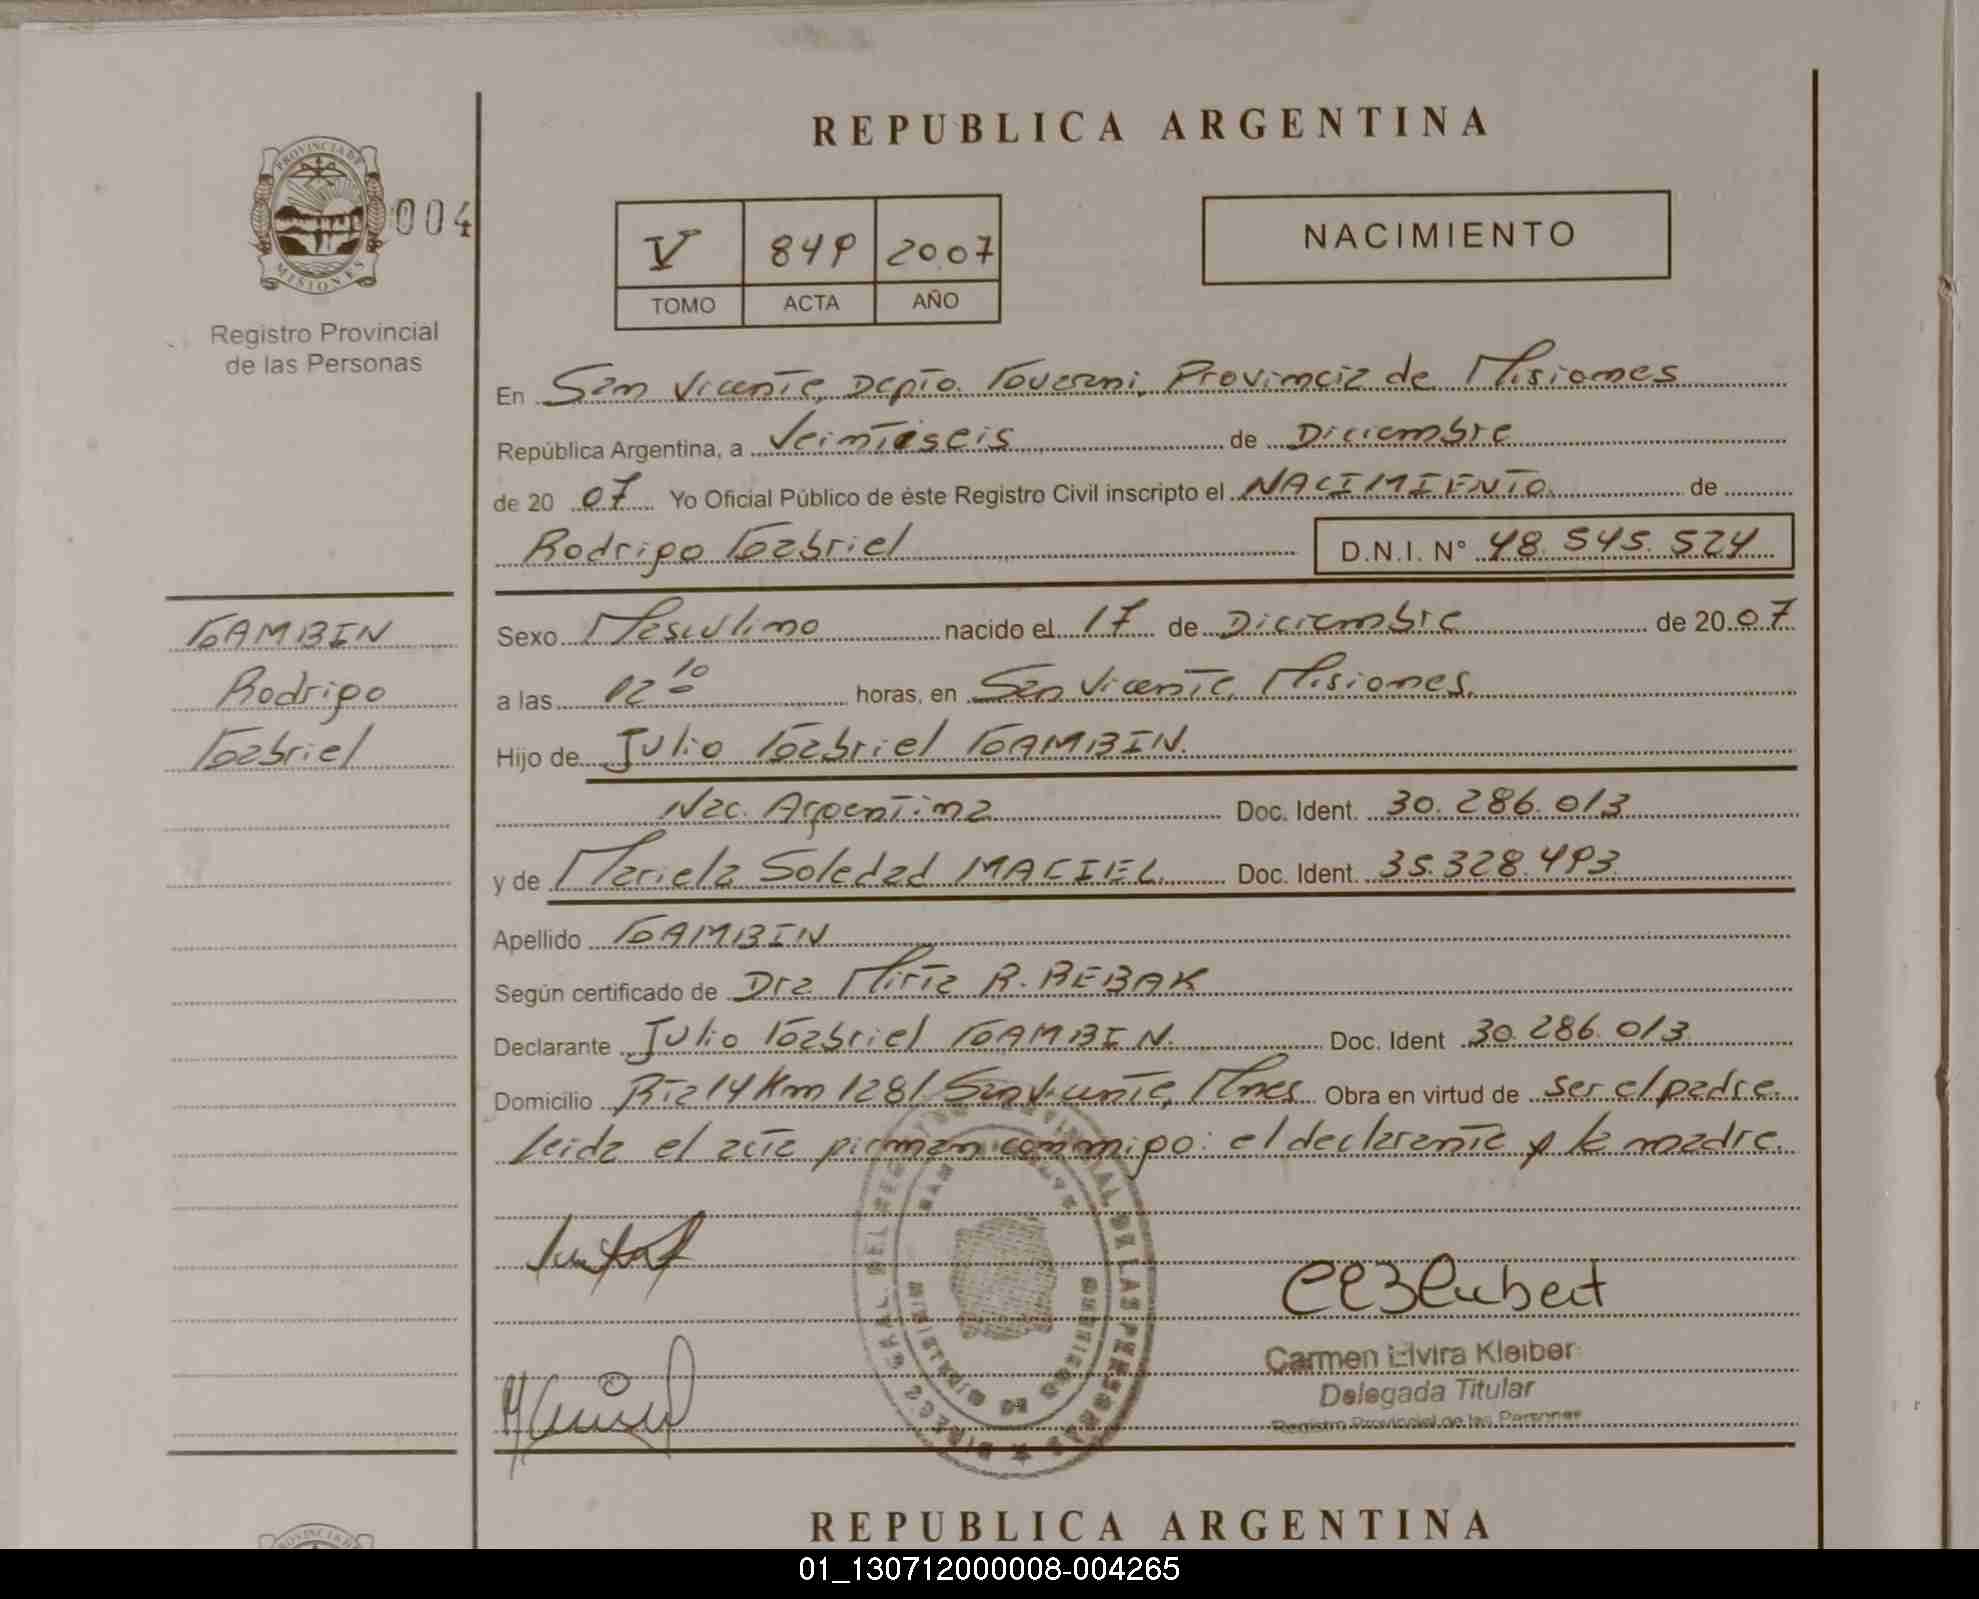 REPUBLICA ARGENTINA
PROVINCIA DE
MISIONES
004
Registro Provincial
de las Personas
V 849 2007
TOMO ACTA AÑO
NACIMIENTO
En San Vicente, Depto. Guarani, Provincia de Misiones
República Argentina, a Veintiseis de Diciembre
de 20 07 Yo Oficial Público de éste Registro Civil inscripto el NACIMIENTO de
Rodrigo Gabriel D.N.I. N° 48.545.524
GAMBIN
Rodrigo
Gabriel
Sexo Masculino nacido el 17 de Diciembre de 20 07
a las 02 10 horas, en San Vicente, Misiones.
Hijo de Julio Gabriel GAMBIN.
Nac. Argentina Doc. Ident. 30.286.013
y de Mariela Soledad MACIEL. Doc. Ident. 35.328.493
Apellido GAMBIN
Según certificado de Dra Mirta R. BEBAK
Declarante Julio Gabriel GAMBIN. Doc. Ident 30.286.013
Domicilio Rta 14 Km 1281 San Vicente, Mnes Obra en virtud de ser el padre.
Leida el acta firman conmigo: el declarante y la madre.
Carmen Elvira Kleiber
Delegada Titular
Registro Provincial de las Personas
REPUBLICA ARGENTINA
01_130712000008-004265